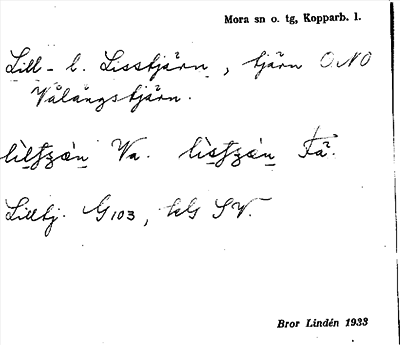 Mora sn o. tg, Kopparb. l.
Lill- l. Lisstjärn, tjärn ONO
Vålångstjärn.
Va. Fä.
Lilltj. G103, tdG SV.
Bror Lindén 1933